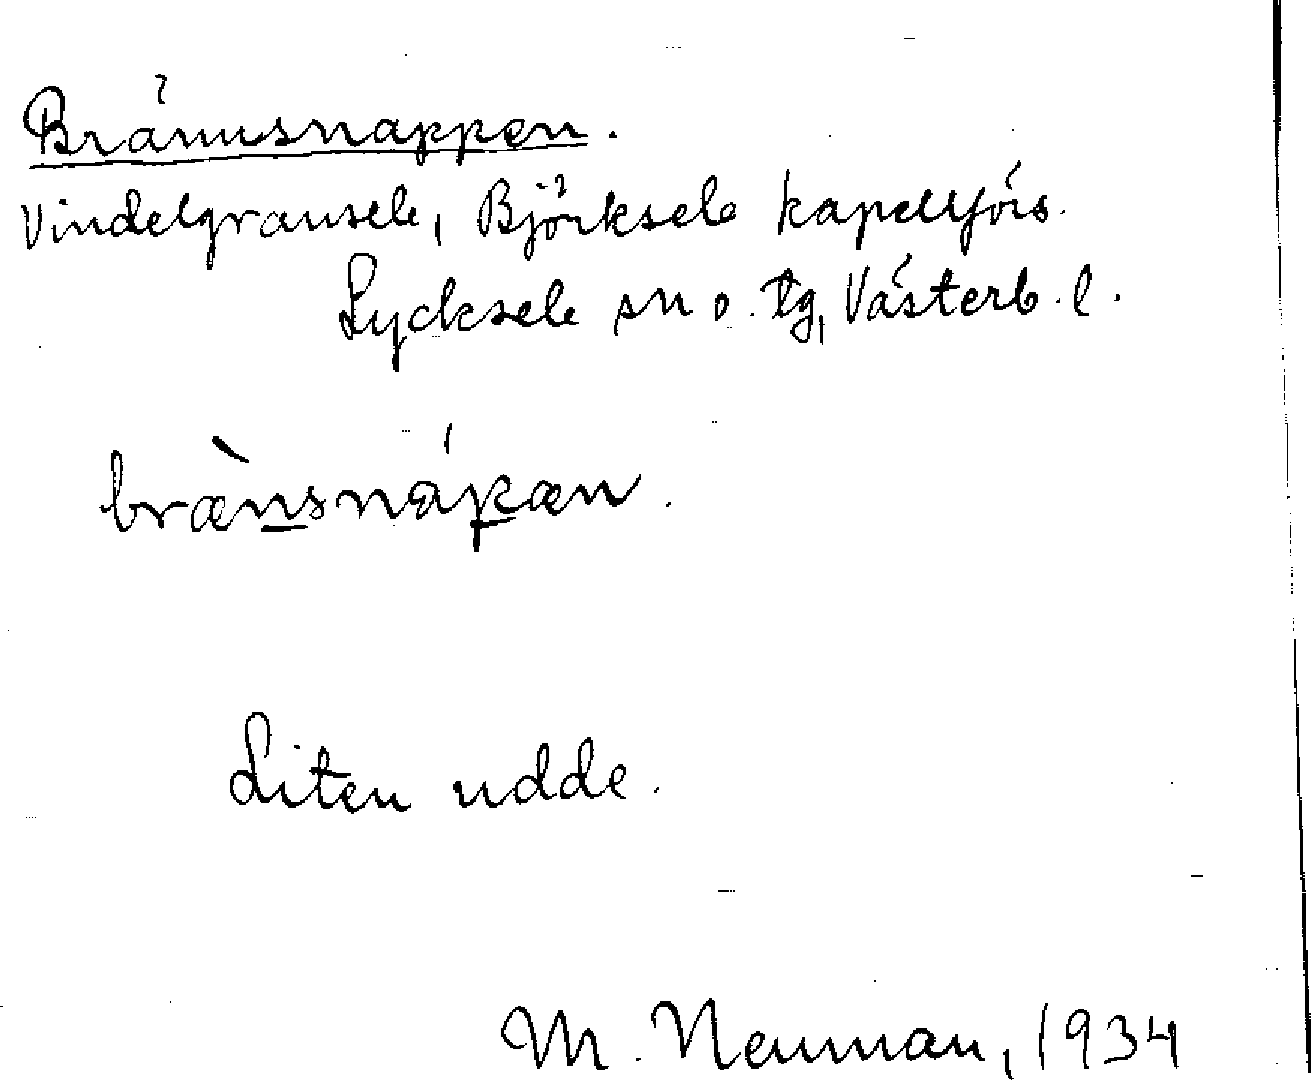 Brännsnappen.
Vindelgransele, Björksele kapellförs.
Lycksele sn o. tg, Västerb. l.
brænsnápæn.
Liten udde.
M. Neuman, 1934